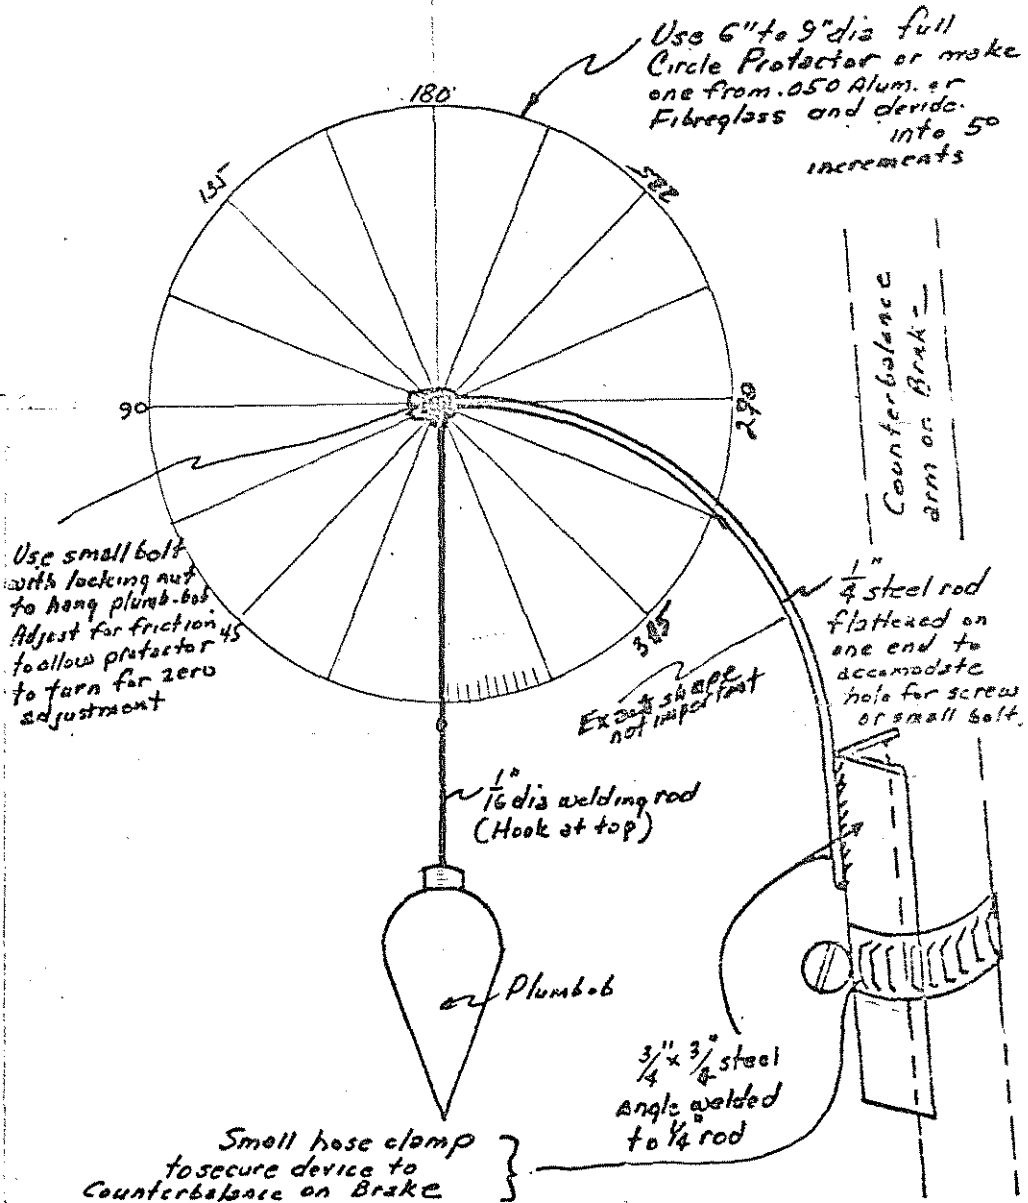 Use 6" to 9" dia full
Circle Protactor or make
one from .050 Alum. or
Fibreglass and devide
into 5°
increments
180
135
225
90
290
45
315
Counterbalance
arm on Brake
Use small bolt
with locking nut
to hang plumb-bob
Adjust for friction
to allow protactor
to turn for zero
adjustment
1/4" steel rod
flattened on
one end to
accomodate
hole for screw
or small bolt.
Exact shape
not important
1/16" dia welding rod
(Hook at top)
Plumbob
3/4" x 3/4" steel
Angle welded
to 1/4" rod
Small hose clamp
to secure device to
Counterbalance on Brake